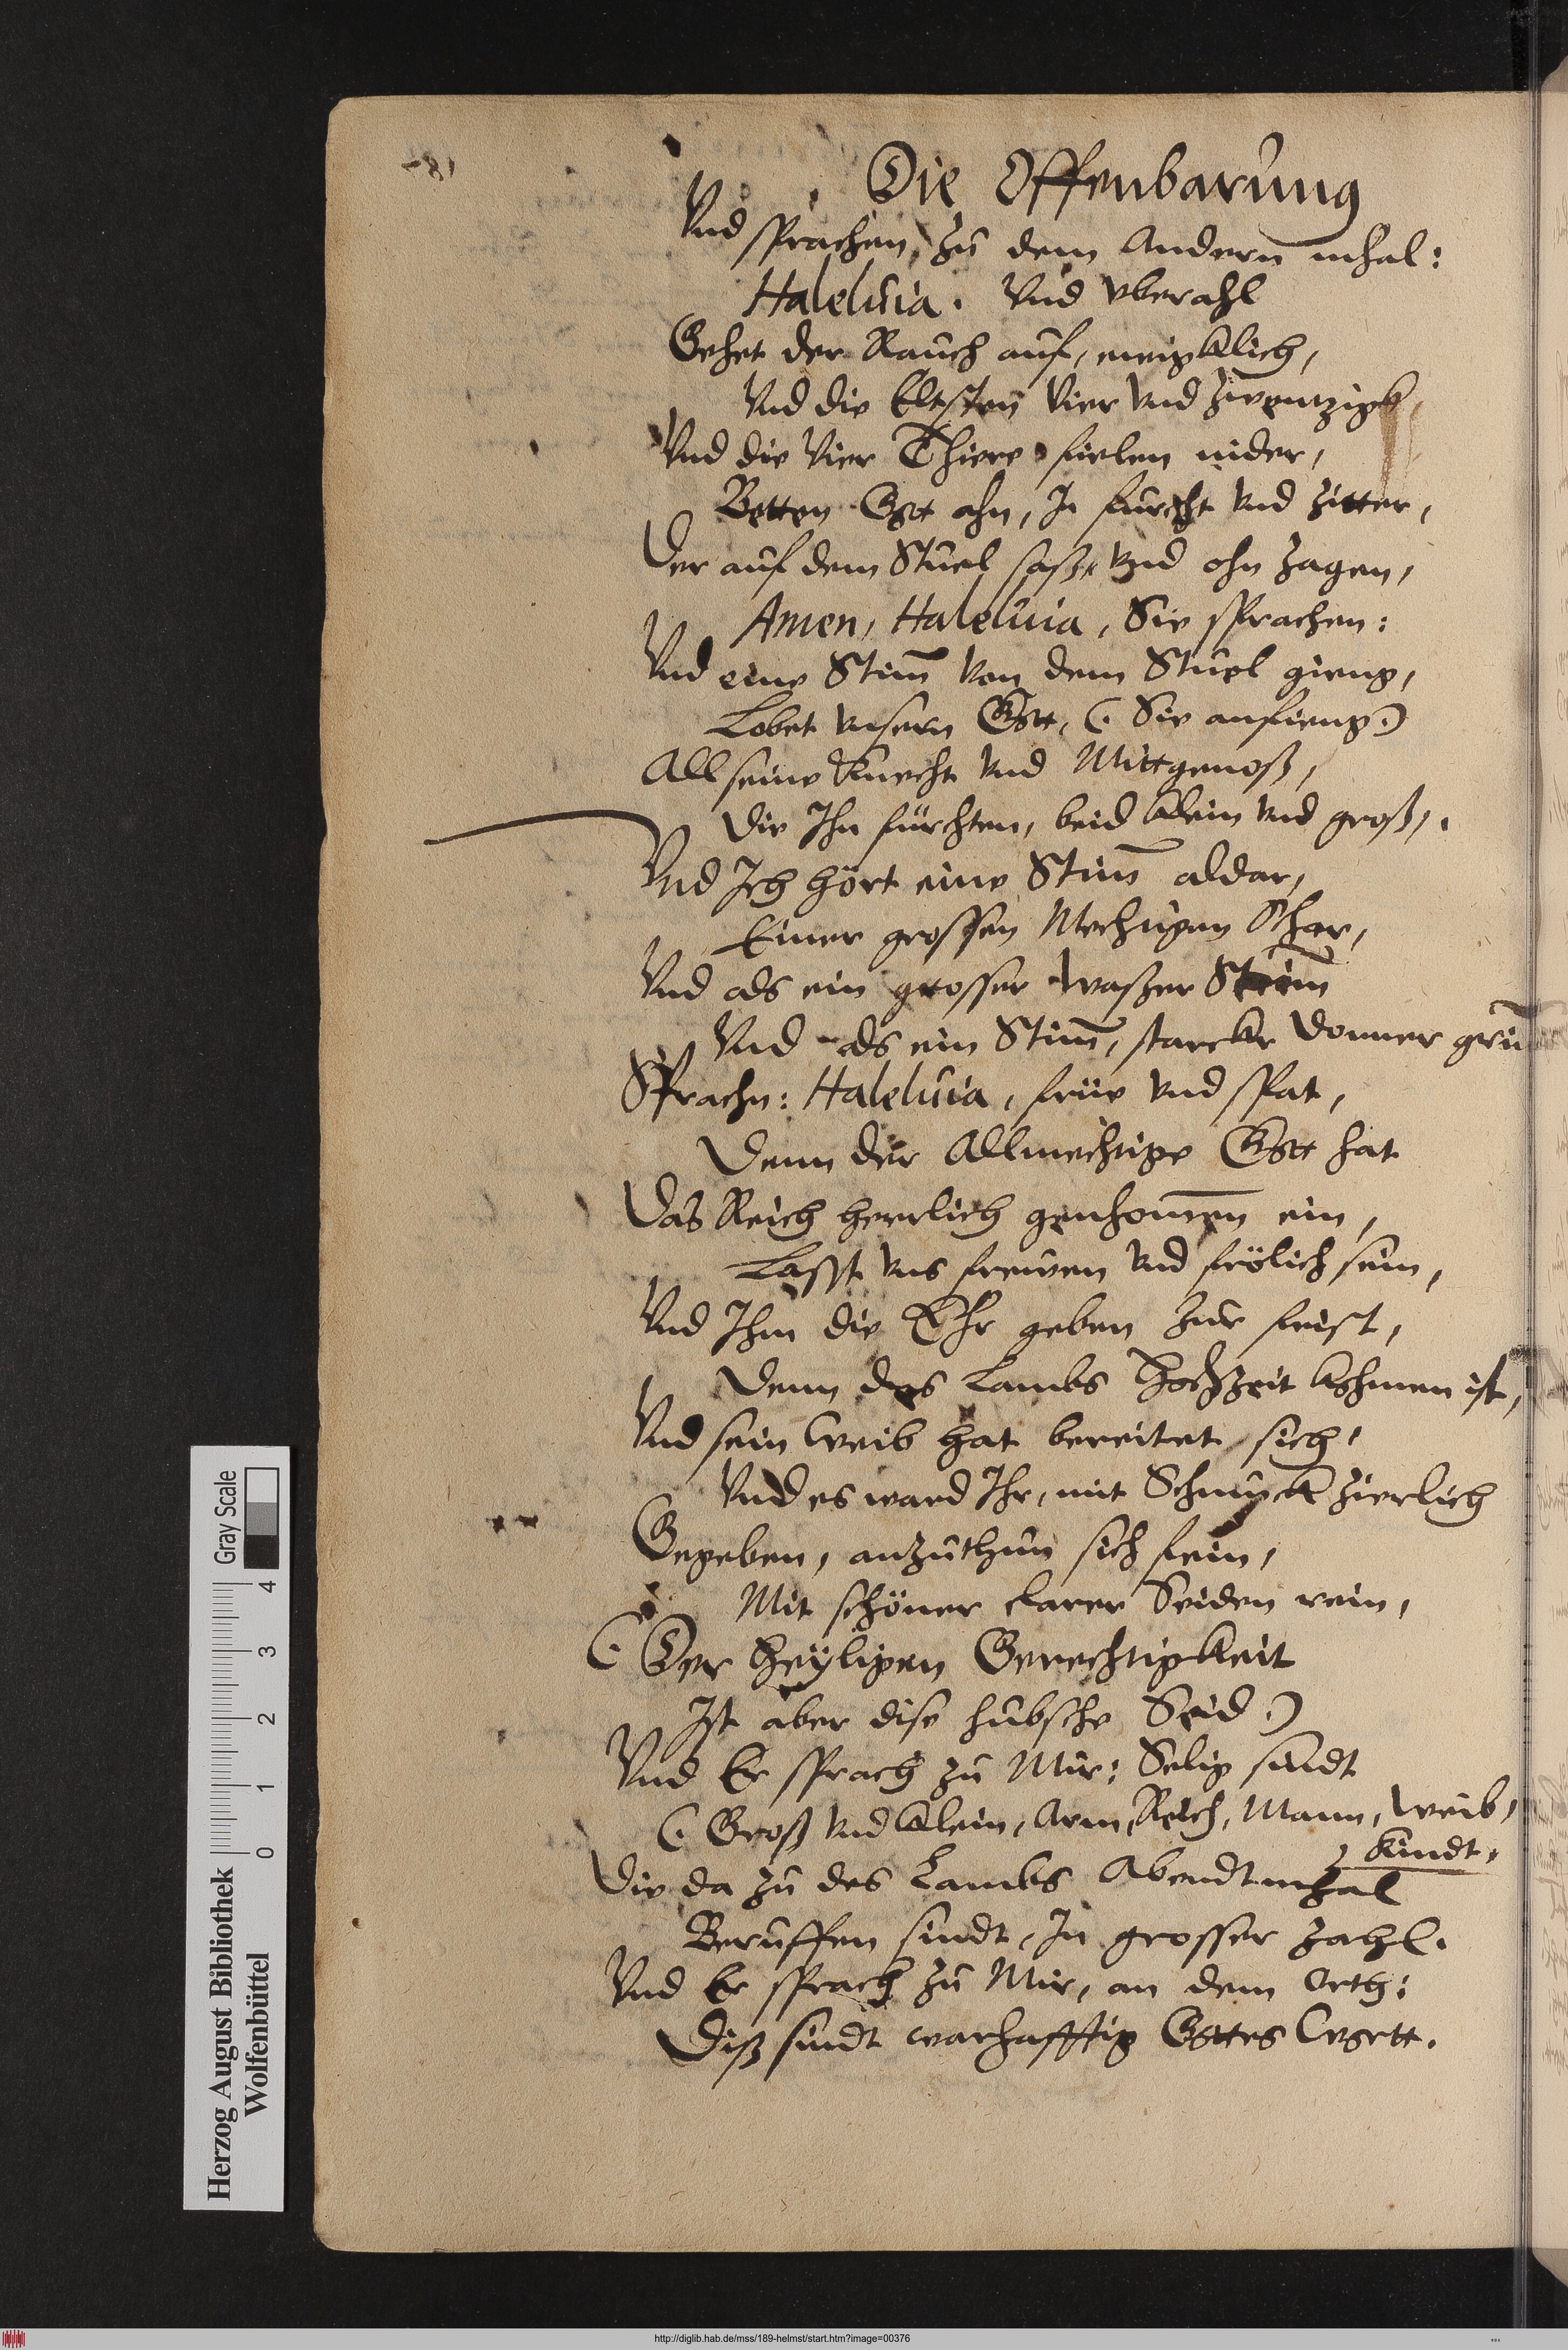 Die Offenbarung
Vnd sprachen, zu dem Andern mhal:
Haleluia. Vnd vberahl
Gehet der Rauch auf, ewigklich,
Vnd die Eltesten Vier vnd zwentzigk,
Vnd die Vier Thiere fielen nider,
Betten Gott ahn, In furcht vnd zitter,
Der auf dem Stuel saß, vnd ohn zagen,
Amen, Haleluia, Sie sprachen:
Vnd eine Stim̄ von dem Stuel gieng,
Lobet vnsern Gott, (. Sie anfieng.)
All seine Knecht vnd Mittgenoß,
Die Ihn fürchten, beid klein vnd groß,.
Vnd Ich hört eine Stim̄ aldar,
Einer grossen Mechtigen Schar,
Vnd als ein grosser Waßer Stim̄
Vnd als ein Stim̄, starcker Donner
Sprachn: Haleluia, früe vnd spat,
Denn der Allmechtige Gott hat
Das Reich herrlich genhom̄en ein,
Lasst vns frewen vnd frölich sein,
Vnd Ihm die Ehr geben zur frist,
Denn des Lambs Hochzeit kohmen ist,
Vnd sein Weib hat bereitet sich,
Vnd es ward Ihr, mit Schmuck zierlich
Gegeben, anzuthun sich fein,
Mit schöner clarer Seiden rein,
(. Der Heÿligen Gerechtigkeit
Ist aber dise hubsche Seid.)
Vnd Er sprach zu Mir: Selig sindt
(. Groß vnd klein, Arm, Reich, Mann, Weib,
kindt,
Die da zu des Lambs Abendtmhal
Beruffen sindt, In grosser zahl.
Vnd Er sprach zu Mir, an dem Orth:
Diß sindt warhafftig Gottes Wortt.
Herzog August Bibliothek
Wolfenbüttel
Gray Scale
0 1 2 3 4
http://diglib.hab.de/mss/189-helmst/start.htm?image=00376